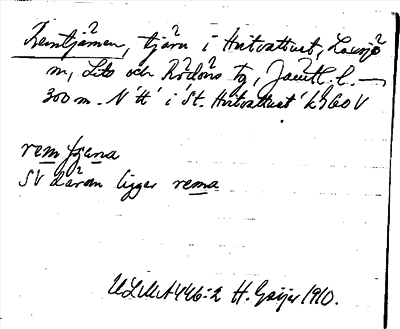 Remtjärnen, tjärn i Hvitvattnet, Laxsjö
m, Lits och Rödöns tg, Jämtl. l. —
300 m. N 'tt' i 'St. Hvitvattnet' k 360 V
rem tjena
SV därom ligger rema
ULMA 446:2 H. Geijer 1910.